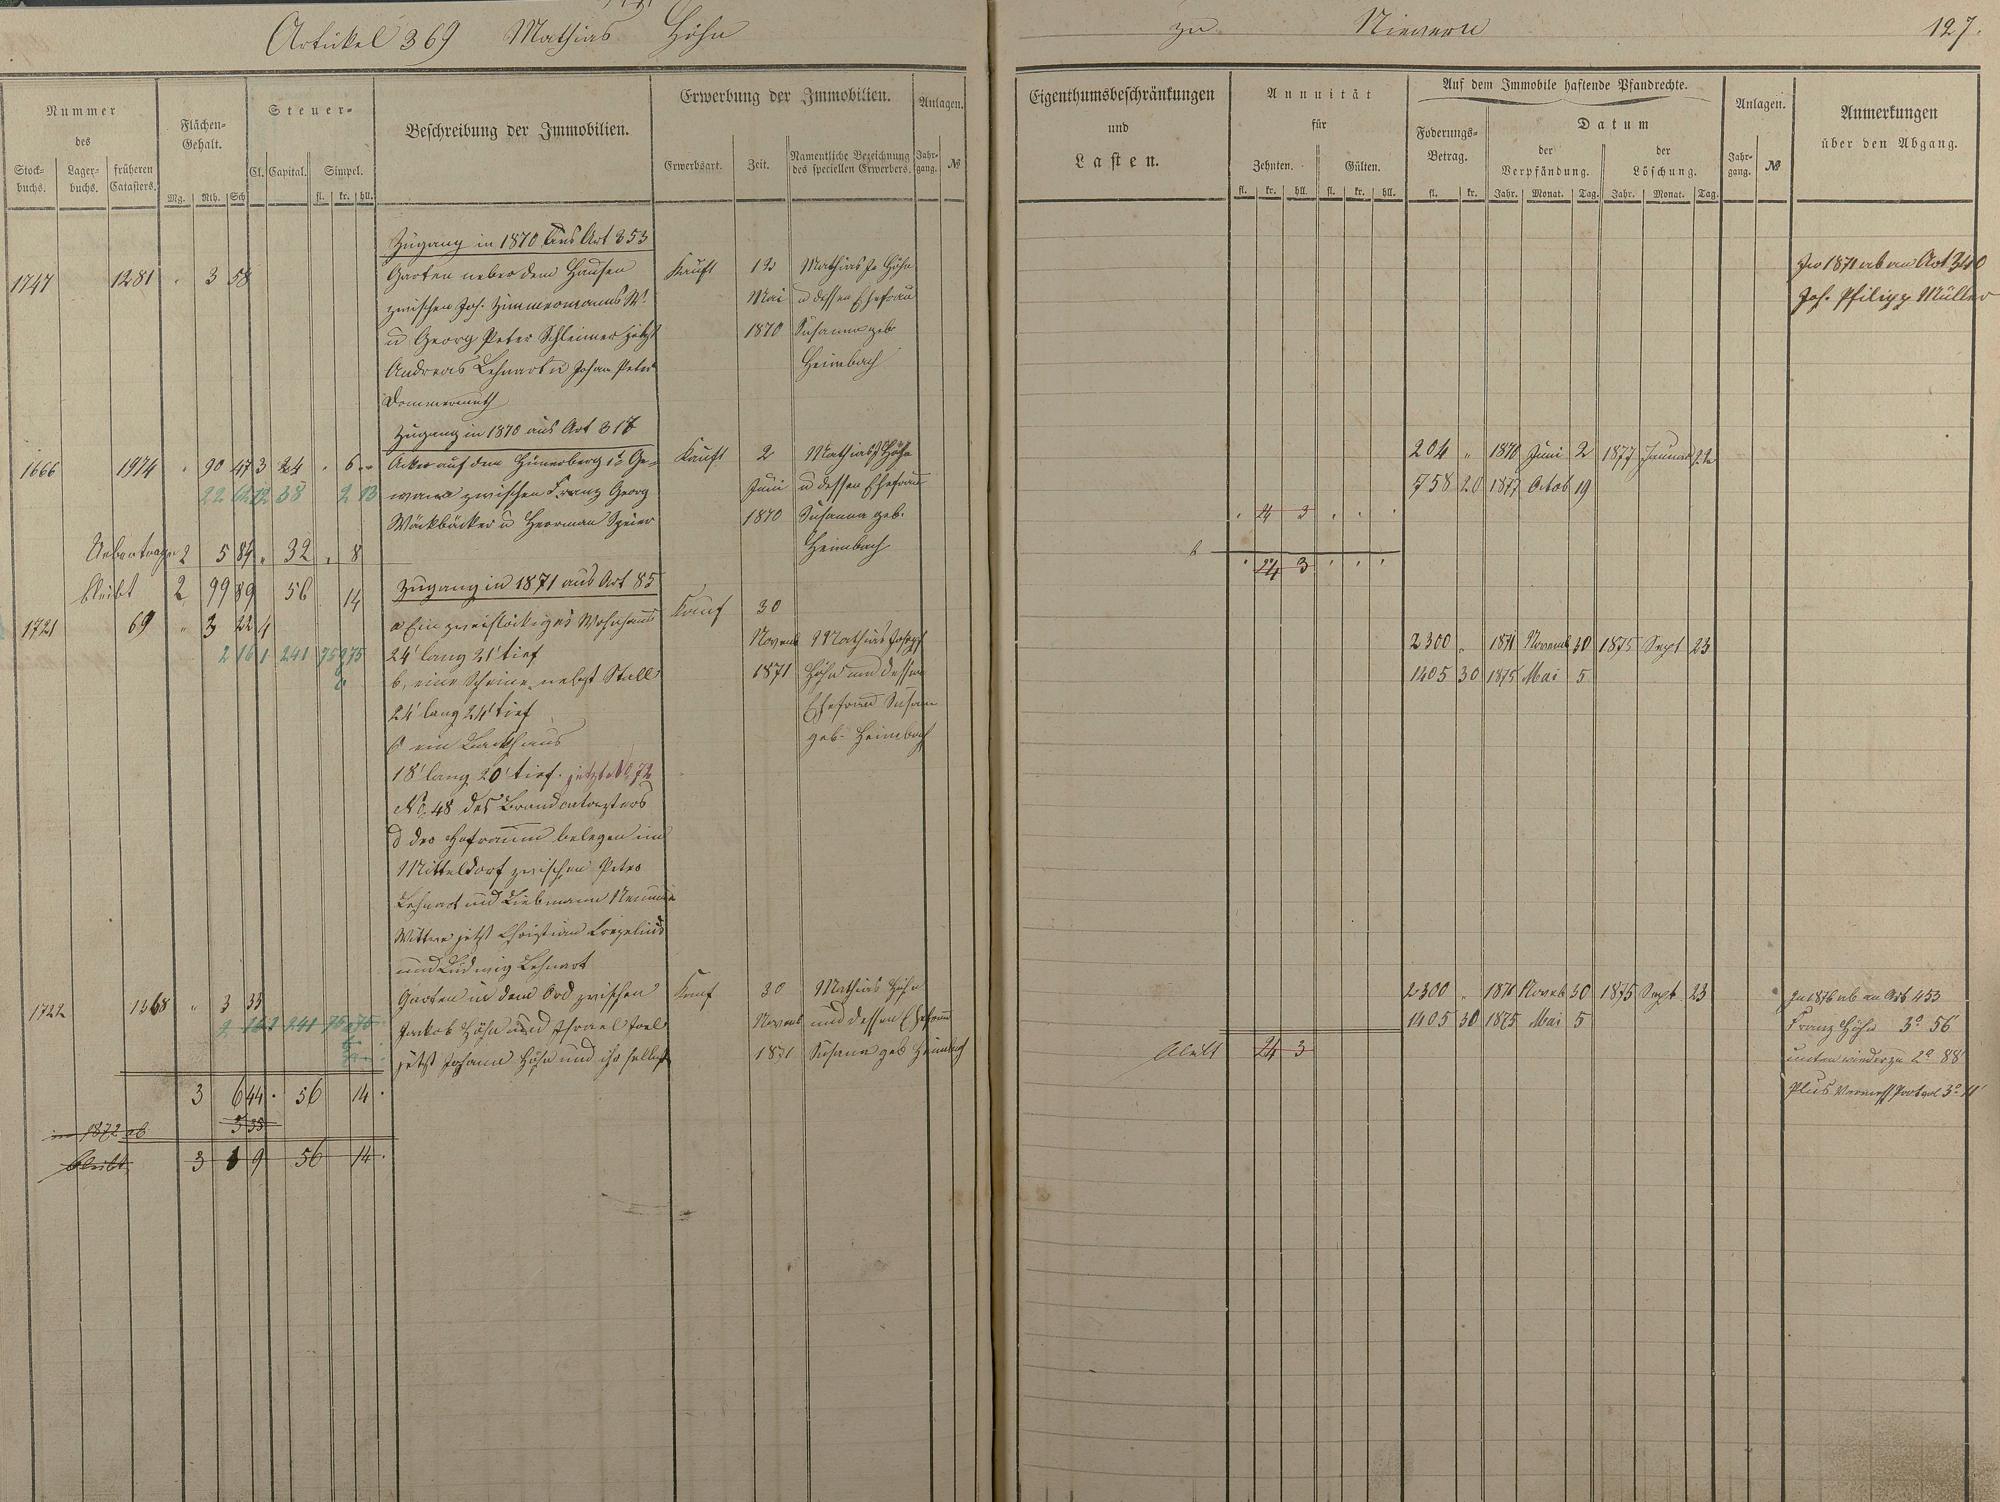 Artikel 369 Mathias Höhn
zu Nievern
127.
Nummer
des
Stock-
buchs.
Lager-
buchs.
früheren
Catasters.
Flächen-
Gehalt.
Mg. Rth. Sch
Steuer-
Cl. Capital. Simpel.
fl. kr. hll.
Beschreibung der Immobilien.
Erwerbung der Immobilien.
Erwerbsart. Zeit.
Namentliche Bezeichnung
des speciellen Erwerbers.
Anlagen.
Jahr-
gang.
№
Eigenthumsbeschränkungen
und
Lasten.
Annuität
für
Zehnten. Gülten.
fl. kr. hll. fl. kr. hll.
Auf dem Immobile haftende Pfandrechte.
Foderungs-
Betrag.
fl. kr.
Datum
der
Verpfändung.
Jahr. Monat. Tag.
der
Löschung.
Jahr. Monat. Tag.
Anlagen.
Jahr-
gang.
№
Anmerkungen
über den Abgang.
Zugang in 1870 aus Art 353
1747 1281 3 58 Garten ueber dem Hausen Kauft 12 Mathias Jo Höhn
zwischen Joh. Zimmermanns Wt. Mai u dessen Ehefrau
u Georg Peter Schleimer jetzt 1870 Susanna geb
Andreas Lehnart u Johan Peter Heimbach
Dommermuth
Jn 1871 ab an Art 340
Joh. Philipp Müller
Zugang in 1870 aus Art 318
1666 1974 90 47 3 24 6 Acker auf dem Hünerberg 1r Ge- Kauft 2 Mathias J Höhn
wann zwischen Franz Georg Juni u dessen Ehefrau
Wäckbäcker u Herrman Speier 1870 Susanna geb.
Heimbach
204 1870 Juni 2 1877 Januar 22
758 20 1877 Octob 19
24 3
24 3
Uebertrage 2 5 84 32 8
bleibt 2 99 89 56 14
Zugang in 1871 aus Art 85
1721 69 3 22 4 a Ein zweistöckiges Wohnhaus Kauf 30
24' lang 21' tief Novemb Mathias Joseph
b, eine Scheune nebst Stall 1871 Höhn und dessen
24' lang 24' tief Ehefrau Susan
c ein Backhaus geb. Heimbach
18' lang 20' tief. jetzt No 72
No. 48 des Brandcatasters
d der Hofraum belegen im
Mitteldorf zwischen Peter
Lehnart und Liebmann
Wittwe jetzt Christian
und Ludwig Lehnart
2300 1871 Novemb 30 1875 Sept 23
1405 30 1875 Mai 5
1722 1368 3 35 Garten in dem Ord zwischen Kauf 30 Mathias Höhn
Jackob Höhn und Israel Joel Novemb und dessen Ehefrau
jetzt Johann Höhn und ihr selbst 1871 Susana geb Heimbach
2300 1871 Novemb 30 1875 Sept 23
1405 30 1875 Mai 5
bleibt 24 3
Jn 1876 ab an Art 453
Franz Höhn 3a 56
unten wieder zu 2a 88
3 6 44 56 14
in 1872 ab 3 35
bleibt 3 9 56 14